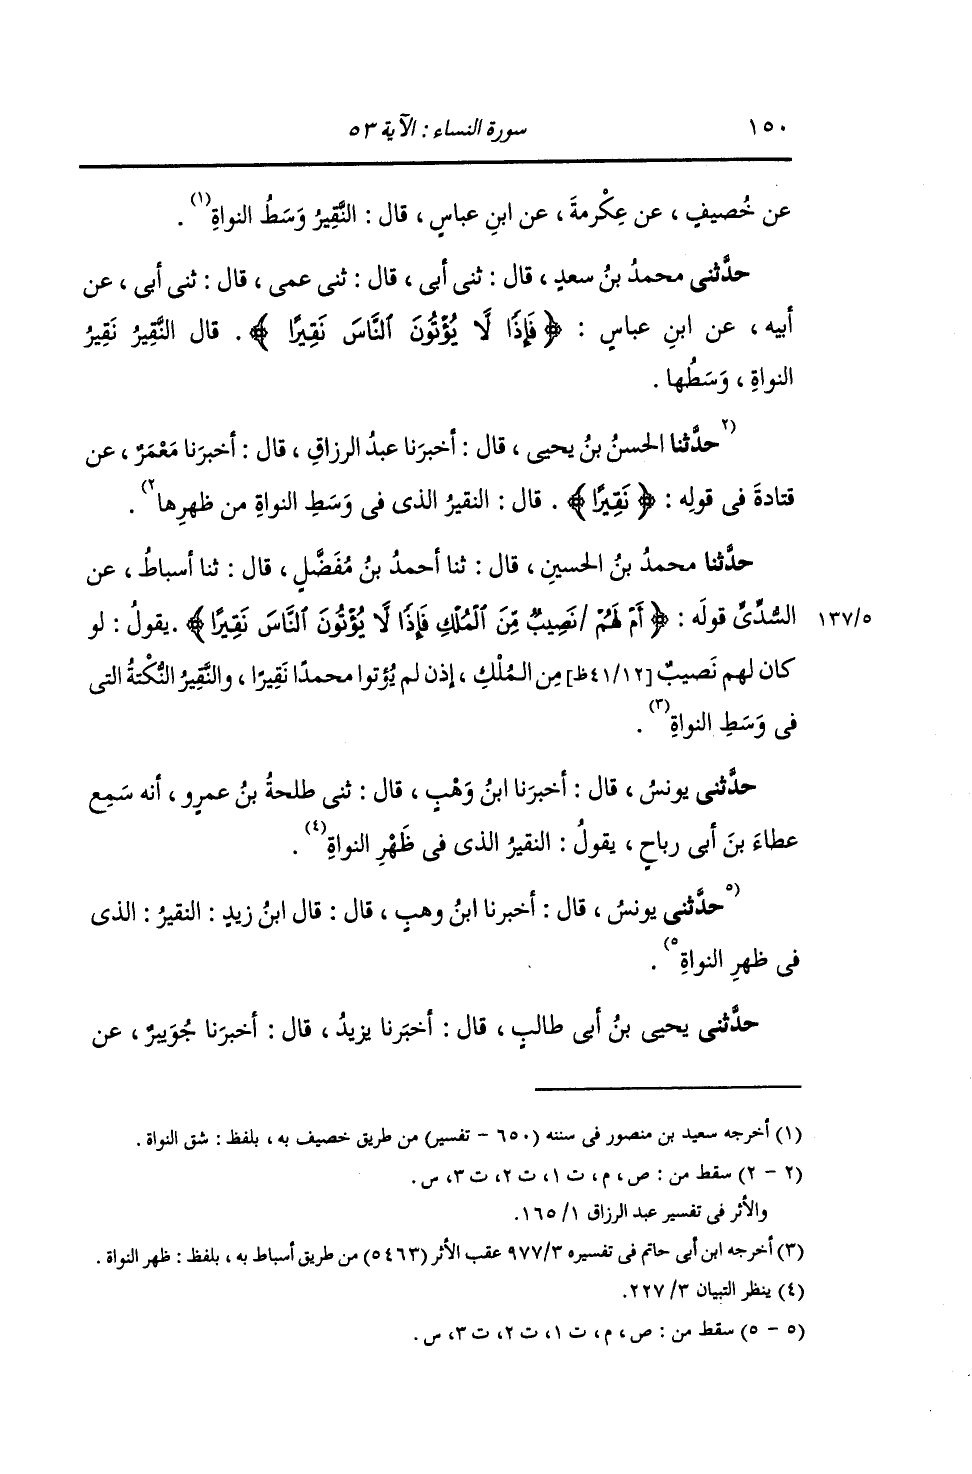 ١٥٠ سورة النساء : الآية ٥٣
عن خُصيفٍ ، عن عِكْرمةَ ، عن ابنِ عباسٍ ، قال : النَّقِيرُ وَسَطُ النواةِ(١) .
حدَّثنى محمدُ بنُ سعدٍ ، قال : ثنى أبى ، قال : ثنى عمى ، قال : ثنى أبى ، عن
أبيه ، عن ابنِ عباسٍ : ﴿ فَإِذًا لَّا يُؤْتُونَ ٱلنَّاسَ نَقِيرًا ﴾ . قال النَّقِيرُ نَقِيرُ
النواةِ ، وَسَطُها .
(٢حدَّثنا الحسنُ بنُ يحيى ، قال : أخبرَنا عبدُ الرزاقِ ، قال : أخبرَنا مَعْمَرٌ ، عن
قتادةَ فى قولِه : ﴿ نَقِيرًا ﴾ . قال : النقيرُ الذى فى وَسَطِ النواةِ من ظهرِها٢) .
حدَّثنا محمدُ بنُ الحسينِ ، قال : ثنا أحمدُ بنُ مُفَضَّلٍ ، قال : ثنا أسباطُ ، عن
السُّدِّىِّ قولَه : ﴿ أَمْ لَهُمْ /نَصِيبٌ مِّنَ ٱلْمُلْكِ فَإِذًا لَّا يُؤْتُونَ ٱلنَّاسَ نَقِيرًا ﴾ .يقولُ : لو ١٣٧/٥
كان لهم نَصيبٌ [٤١/١٢ظ] مِن المُلْكِ ، إذن لم يُؤتوا محمدًا نَقِيرًا ، والنَّقِيرُ النُّكْتةُ التى
فى وَسَطِ النواةِ(٣) .
حدَّثنى يونسُ ، قال : أخبرَنا ابنُ وَهْبٍ ، قال : ثنى طلحةُ بنُ عمرٍو ، أنه سَمِع
عطاءَ بنَ أبى رباحٍ ، يقولُ : النقيرُ الذى فى ظَهْرِ النواةِ(٤) .
(٥حدَّثنى يونسُ ، قال : أخبرنا ابنُ وهبٍ ، قال : قال ابنُ زيدٍ : النقيرُ : الذى
فى ظهرِ النواةِ٥) .
حدَّثنى يحيى بنُ أبى طالبٍ ، قال : أخبَرنا يزيدُ ، قال : أخبرَنا جُوَيبرٌ ، عن
(١) أخرجه سعيد بن منصور فى سننه (٦٥٠ - تفسير) من طريق خصيف به ، بلفظ : شق النواة .
(٢ - ٢) سقط من : ص، م، ت ١، ت ٢، ت ٣، س.
والأثر فى تفسير عبد الرزاق ١/ ١٦٥.
(٣) أخرجه ابن أبى حاتم فى تفسيره ٩٧٧/٣ عقب الأثر (٥٤٦٣) من طريق أسباط به ، بلفظ : ظهر النواة .
(٤) ينظر التبيان ٣/ ٢٢٧.
(٥ - ٥) سقط من : ص، م، ت ١، ت ٢، ت ٣، س.